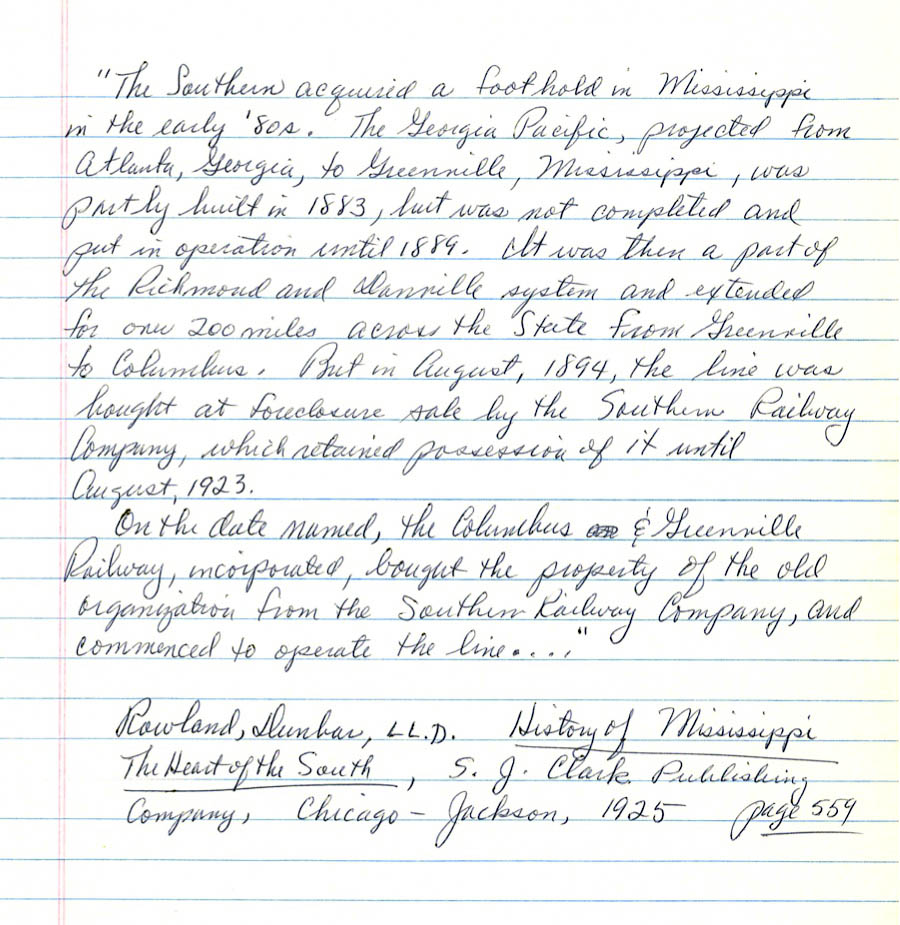 "The Southern acquired a foothold in Mississippi
in the early '80s. The Georgia Pacific, projected from
Atlanta, Georgia, to Greenville, Mississippi, was
partly built in 1883, but was not completed and
put in operation until 1889. It was then a part of
the Richmond and Danville system and extended
for over 200 miles across the State from Greenville
to Columbus. But in August, 1894, the line was
bought at foreclosure sale by the Southern Railway
Company, which retained possession of it until
August, 1923.
On the date named, the Columbus & Greenville
Railway, incorporated, bought the property of the old
organization from the Southern Railway Company, and
commenced to operate the line...."
Rowland, Dunbar, LL.D. History of Mississippi
The Heart of the South, S. J. Clark Publishing
Company, Chicago - Jackson, 1925 page 559